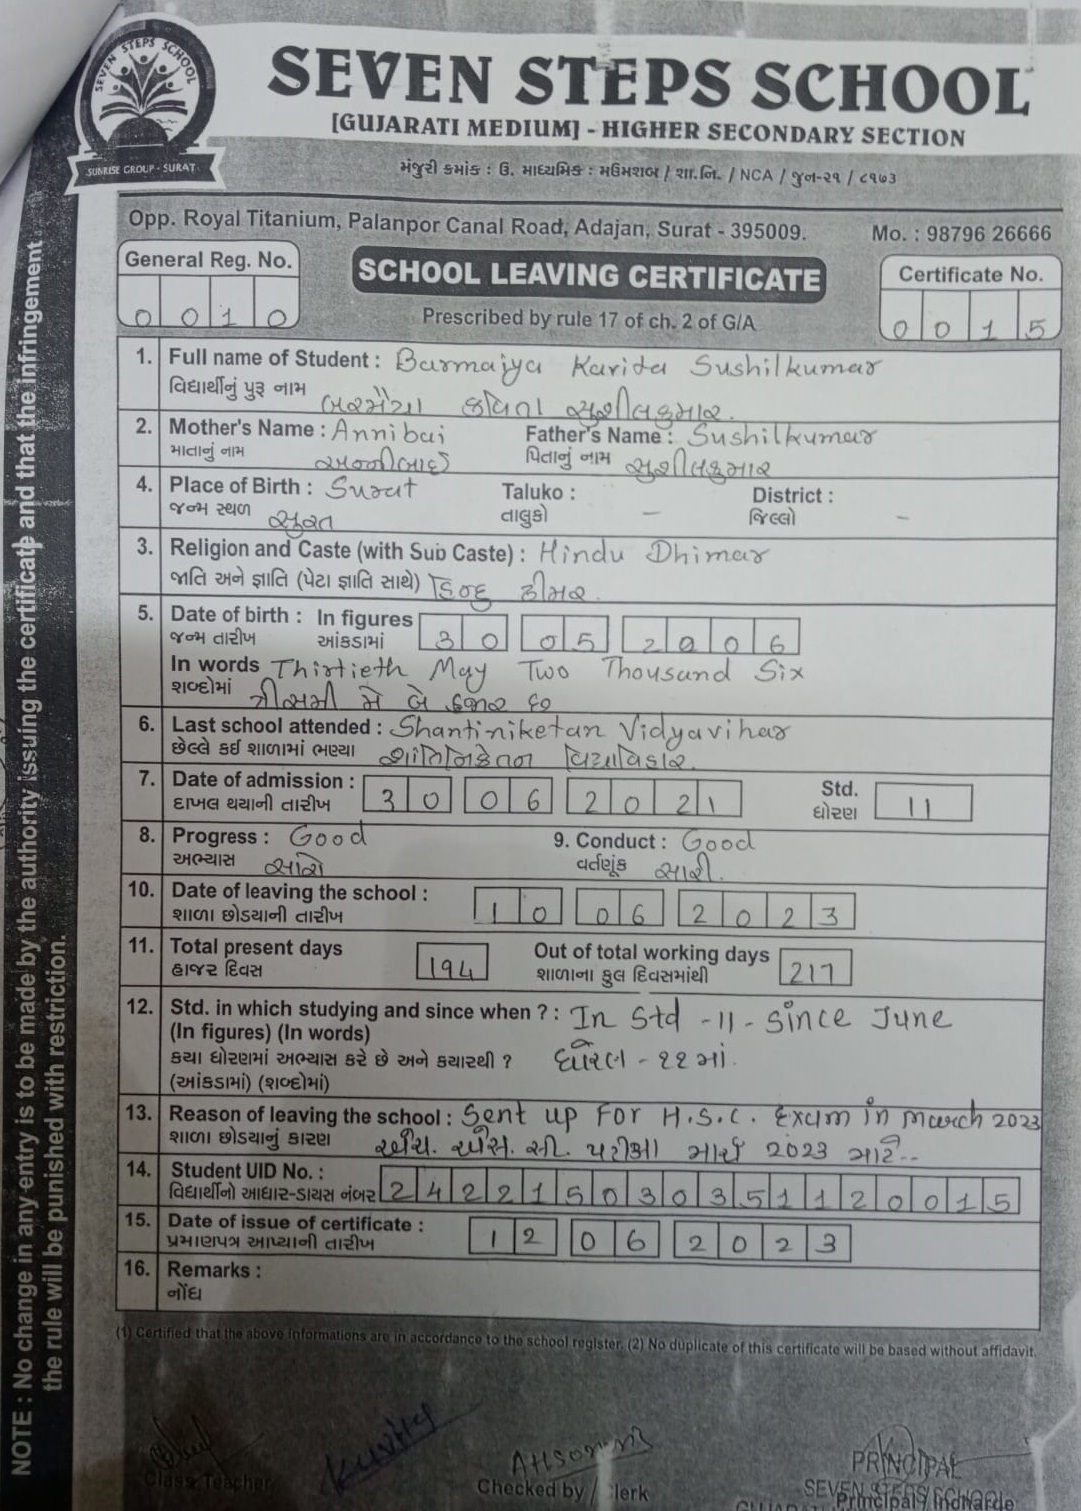 SEVEN STEPS SCHOOL
SUNRISE GROUP - SURAT
SEVEN STEPS SCHOOL
[GUJARATI MEDIUM] - HIGHER SECONDARY SECTION
મંજુરી ક્રમાંક : ઉ. માધ્યમિક : મઉમશબ / શા.નિ. / NCA / જુન-૨૧ / ૮૧૭૩
Opp. Royal Titanium, Palanpor Canal Road, Adajan, Surat - 395009. Mo. : 98796 26666
General Reg. No. SCHOOL LEAVING CERTIFICATE Certificate No.
0010 Prescribed by rule 17 of ch. 2 of G/A 0015
1. Full name of Student : Barmaiya Kavita Sushilkumar
વિદ્યાર્થીનું પુરૂ નામ બરમૈયા કવિતા સુશીલકુમાર.
2. Mother's Name : Annibai Father's Name : Sushilkumar
માતાનું નામ અન્નીબાઈ પિતાનું નામ સુશીલકુમાર
4. Place of Birth : Surat Taluko : District :
જન્મ સ્થળ સુરત તાલુકો – જિલ્લો –
3. Religion and Caste (with Sub Caste) : Hindu Dhimar
જાતિ અને જ્ઞાતિ (પેટા જ્ઞાતિ સાથે) હિન્દુ ઢીમર.
5. Date of birth : In figures 30 05 2006
જન્મ તારીખ આંકડામાં
In words Thirtieth May Two Thousand Six
શબ્દોમાં ત્રીસમી મે બે હજાર છ
6. Last school attended : Shantiniketan Vidyavihar
છેલ્લે કઈ શાળામાં ભણ્યા શાંતિનિકેતન વિદ્યાવિહાર.
7. Date of admission : 30 06 2021 Std. 11
દાખલ થયાની તારીખ ધોરણ
8. Progress : Good 9. Conduct : Good
અભ્યાસ સારો વર્તણૂંક સારી.
10. Date of leaving the school : 10 06 2023
શાળા છોડયાની તારીખ
11. Total present days 194 Out of total working days 217
હાજર દિવસ શાળાના કુલ દિવસમાંથી
12. Std. in which studying and since when ? : In Std -11- since June
(In figures) (In words)
કયા ધોરણમાં અભ્યાસ કરે છે અને કયારથી ? ધોરણ - ૧૧માં.
(આંકડામાં) (શબ્દોમાં)
13. Reason of leaving the school : Sent up For H.S.C. Exam in march 2023
શાળા છોડયાનું કારણ એચ. એસ. સી. પરીક્ષા માર્ચ 2023 માટે..
14. Student UID No. : 242215030351120015
વિદ્યાર્થીનો આધાર-ડાયસ નંબર
15. Date of issue of certificate : 12 06 2023
પ્રમાણપત્ર આપ્યાની તારીખ
16. Remarks :
નોંધ
(1) Certified that the above informations are in accordance to the school register. (2) No duplicate of this certificate will be based without affidavit.
Class Teacher Checked by / Clerk PRINCIPAL
SEVEN STEPS SCHOOL
Principal / Incharge
NOTE : No change in any entry is to be made by the authority issuing the certificate and that the infringement
the rule will be punished with restriction.